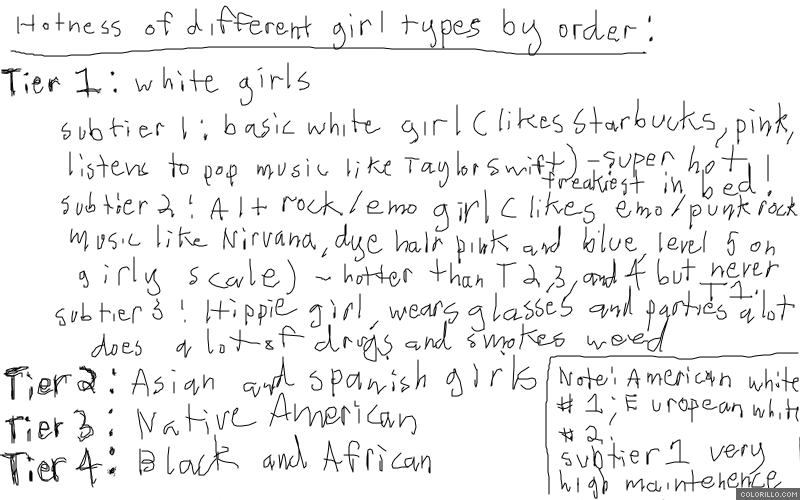 Hotness of different girl types by order:
Tier 1: white girls
subtier 1: basic white girl (likes Starbucks, pink,
listens to pop music like Taylor Swift) - super hot,
freakiest in bed!
subtier 2: Alt rock/emo girl (likes emo/punk rock
music like Nirvana, dye hair pink and blue, level 5 on
girly scale) ~ hotter than T 2,3, and 4 but never
T1.
subtier 3: Hippie girl, wears glasses and parties a lot
does a lot of drugs and smokes weed
Tier 2: Asian and spanish girls
Tier 3: Native American
Tier 4: Black and African
Note: American white
#1; European white
#2;
subtier 1 very
high maintenence
COLORILLO.COM